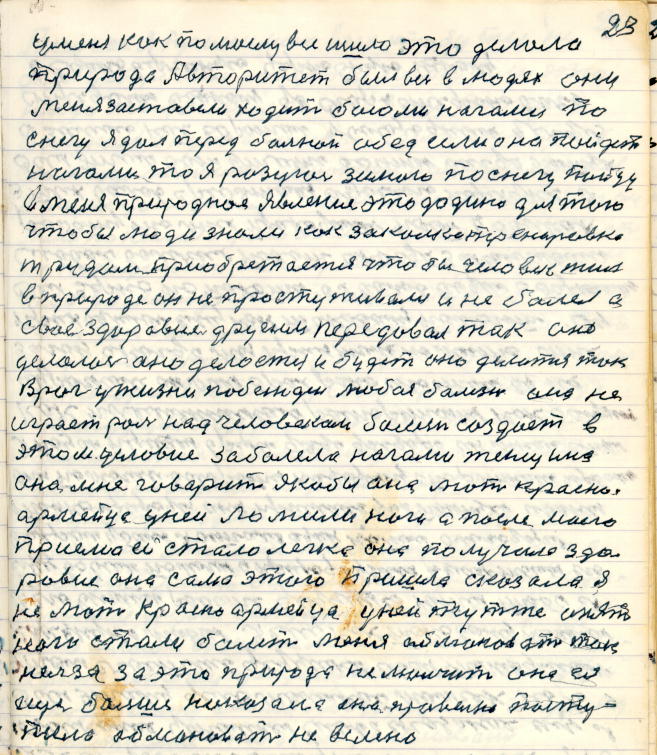 23
уменя как помоему вышло это делала
природа Авторитет был вы в людях они
меня заставели ходит босоми нагами по
снегу я дал перед болной обед если она пойдет
нагами то я разуюс зимою поснегу пойду
Уменя природное явления это додино для того
чтобы люди знали как закалкатренеровка
трудам приобретается что бы человек жил
в природе он не простуживали и не болел а
свое здоровие другим передовал так оно
делолос ано делается и будет оно делатся так
Враг ужизни победжен любая болезн она не
играет рол над человекам болезн создает в
этом условие заболела нагами женщина
она мне говарит якобы она мот красно-
армейца уней ломили ноги а после моего
приема ей стало легка она получила здо-
ровие она сама этого пришла сказала я
не мот Красноармейца уней тутже опят
наго стали болет меня обмановат так
нелзя за это природа не молчит она ея
ище болше наказала она правелно посту-
пила обмановат не велено